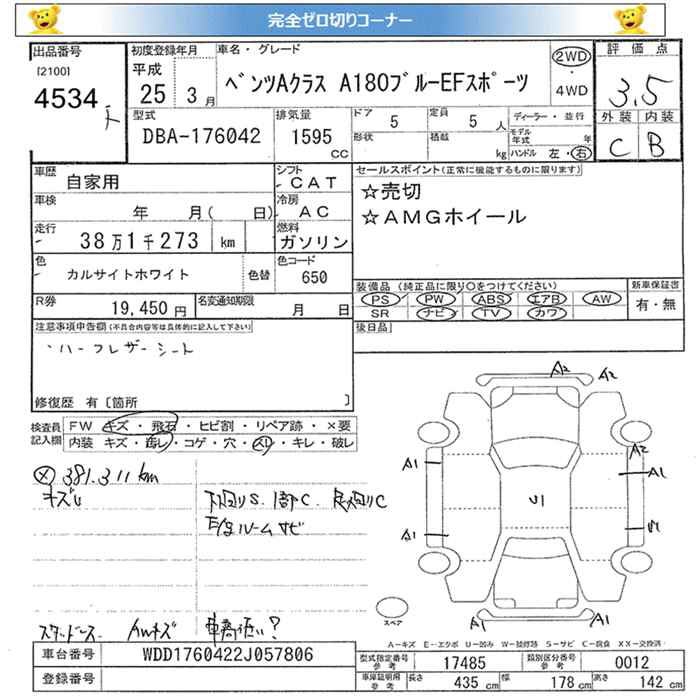 完全ゼロ切りコーナー
出品番号
[2100]
4534
初度登録年月
平成
25 3月
車名・グレード
ベンツAクラス A180ブルーEFスポーツ
2WD
4WD
評価点
3.5
外装 内装
C B
型式
DBA-176042
排気量
1595
CC
ドア
5
定員
5人
形状
積載
kg
ディーラー・並行
モデル年式 年
ハンドル 左・右
車歴
自家用
シフト
CAT
車検
年 月( 日)
冷房
AC
走行
38万1千273 km
燃料
ガソリン
色
カルサイトホワイト
色替
色コード
650
R券
19,450円
名変通知期限
月 日
セールスポイント(正常に機能するものに限ります)
☆売切
☆AMGホイール
装備品(純正品に限り○をつけてください)
PS PW ABS エアB AW
SR ナビ TV カワ
新車保証書
有・無
後日品
注意事項申告欄(不具合内容等は具体的に記入して下さい)
・ハーフレザーシート
修復歴 有〔箇所 〕
検査員記入欄
FW キズ・飛石・ヒビ割・リペア跡・×要
内装 キズ・汚レ・コゲ・穴・スレ・キレ・破レ
381.311km
キズ
下回りS.
ルームサビ
AWキズ
A2 A2
A1
A2
A1
A1
A1 A1
スペア
A-キズ E-エクボ U-凹み W-補修跡 S-サビ C-腐食 XX-交換済
車台番号
WDD1760422J057806
登録番号
型式指定番号 参考
17485
類別区分番号 参考
0012
車庫証明用 参考
長さ 435 cm 幅 178 cm 高さ 142 cm